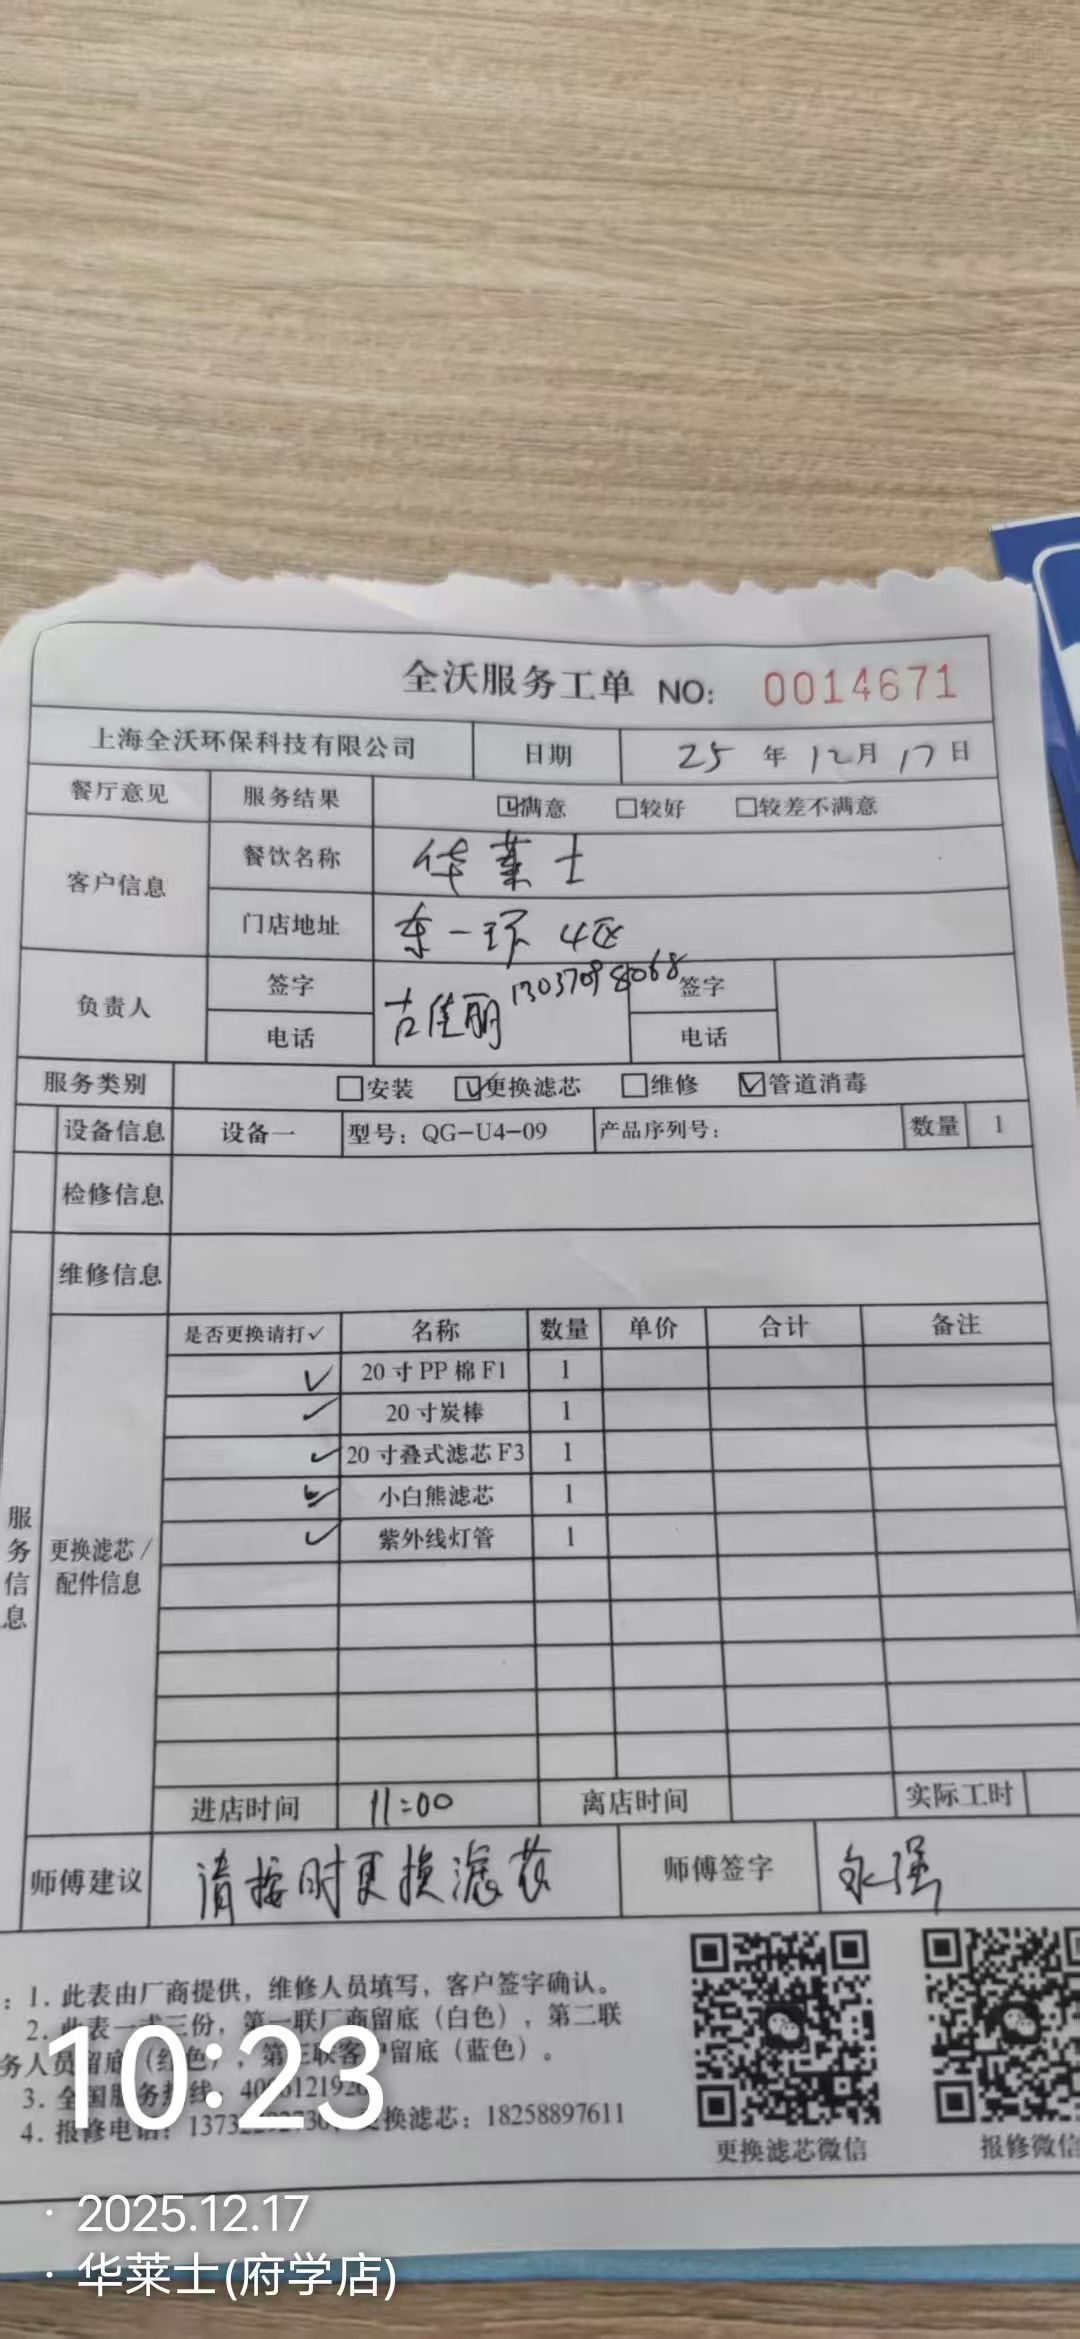 全沃服务工单 NO: 0014671
上海全沃环保科技有限公司 日期 25 年 12 月 17 日
餐厅意见 服务结果 ☑满意 □较好 □较差不满意
客户信息 餐饮名称 华莱士
门店地址 东一环 4区
负责人 签字 古佳丽 13037098068 签字
电话 电话
服务类别 □安装 ☑更换滤芯 □维修 ☑管道消毒
设备信息 设备一 型号：QG-U4-09 产品序列号： 数量 1
检修信息
维修信息
服务信息
更换滤芯/配件信息
是否更换请打✓ 名称 数量 单价 合计 备注
✓ 20寸PP棉F1 1
✓ 20寸炭棒 1
✓ 20寸叠式滤芯F3 1
✓ 小白熊滤芯 1
✓ 紫外线灯管 1
进店时间 11:00 离店时间 实际工时
师傅建议 请按时更换滤芯 师傅签字 永强
：1. 此表由厂商提供，维修人员填写，客户签字确认。
2. 此表一式三份，第一联厂商留底（白色），第二联
务人员留底（红色），第三联客户留底（蓝色）。
3. 全国服务热线：
4. 报修电话： 更换滤芯：18258897611
更换滤芯微信 报修微信
10:23
· 2025.12.17
· 华莱士(府学店)